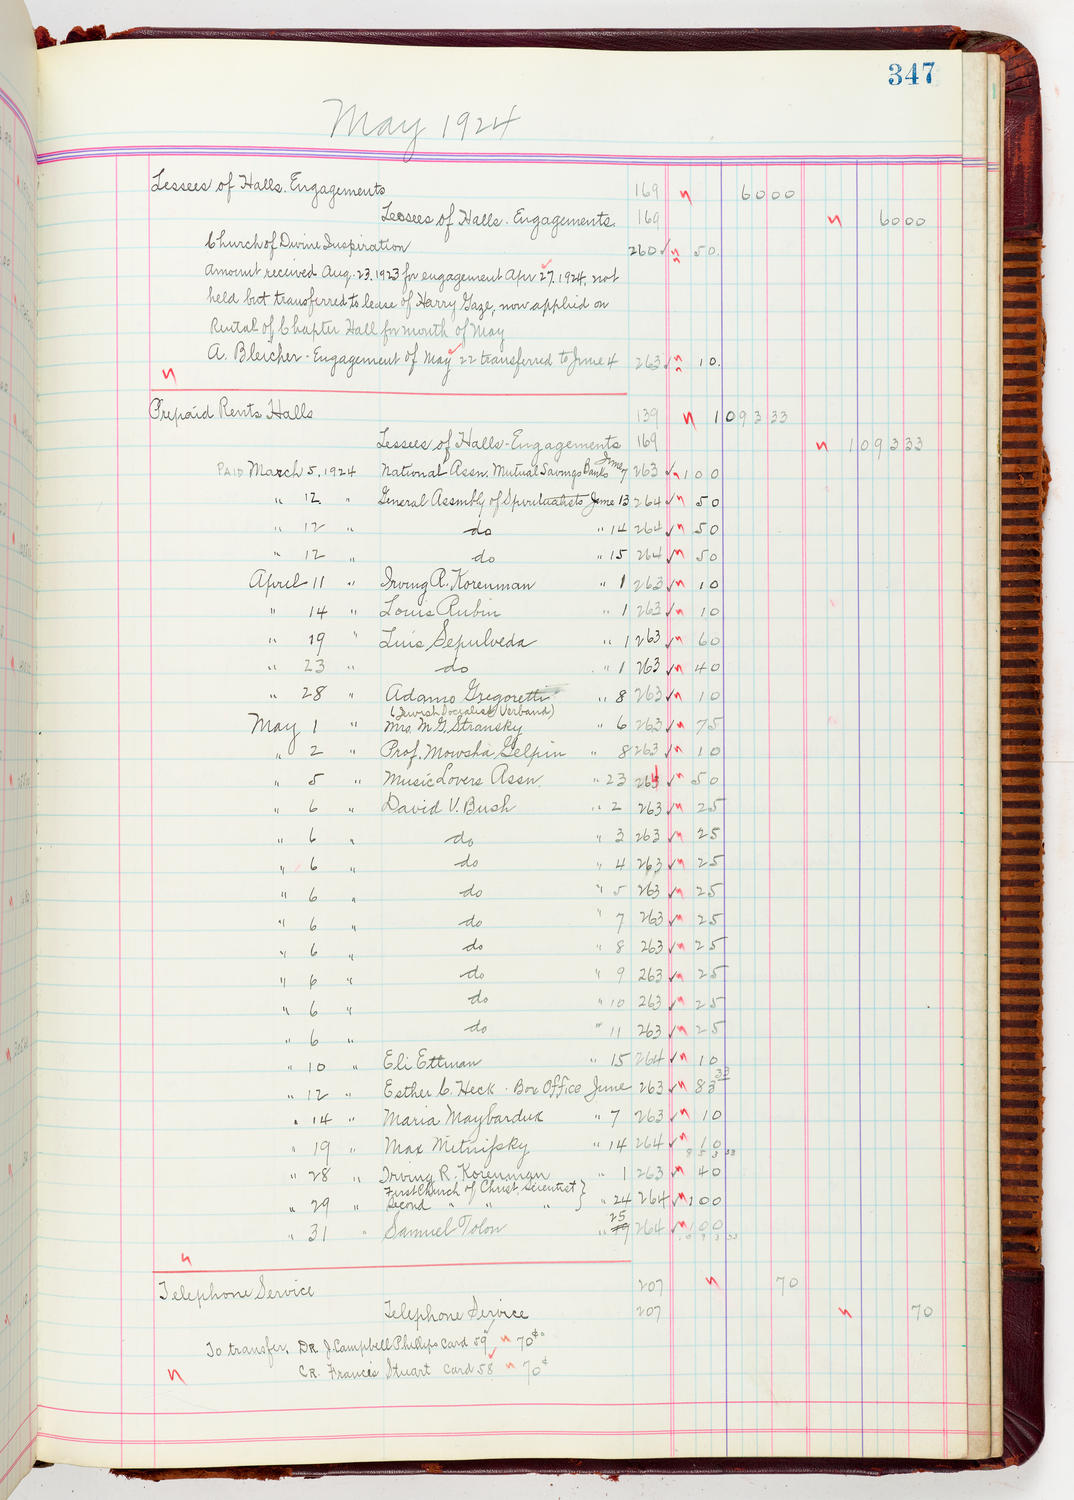 347
May 1924
Lessees of Halls. Engagements 169 6000
Lessees of Halls. Engagements. 169 6000
Church of Divine Inspiration 260 ✓ 50.
Amount received Aug. 23. 1923 for engagement Apr 27. 1924, not
held but transferred to lease of Harry Gaze, now applied on
Rental of Chapter Hall for month of May
A. Bleicher - Engagement of May 22 transferred to June 4 263 ✓ 10.
Prepaid Rents Halls 139 1093 33
Lessees of Halls - Engagements 169 1093 33
PAID March 5, 1924 National Assn. Mutual Savings Banks June 7 263 ✓ 100
" 12 " General Assembly of Spiritualists June 13 264 ✓ 50
" 12 " do " 14 264 ✓ 50
" 12 " do " 15 264 ✓ 50
April 11 " Irving R. Korenman " 1 263 ✓ 10
" 14 " Louis Rubin " 1 263 ✓ 10
" 19 " Luis Sepulveda " 1 263 ✓ 60
" 23 " do " 1 263 ✓ 40
" 28 " Adamo Gregoretti " 8 263 ✓ 10
(Jewish Socialist Verband)
May 1 " Mrs. M. G. Stransky " 6 263 ✓ 75
" 2 " Prof. Mowsha Gelpin " 8 263 ✓ 10
" 5 " Music Lovers Assn. " 23 264 ✓ 50
" 6 " David V. Bush " 2 263 ✓ 25
" 6 " do " 3 263 ✓ 25
" 6 " do " 4 263 ✓ 25
" 6 " do " 5 263 ✓ 25
" 6 " do " 7 263 ✓ 25
" 6 " do " 8 263 ✓ 25
" 6 " do " 9 263 ✓ 25
" 6 " do " 10 263 ✓ 25
" 6 " do " 11 263 ✓ 25
" 10 " Eli Ettman " 15 264 ✓ 10
" 12 " Esther C. Heck - Box Office June 263 ✓ 83 33
" 14 " Maria Maybarduk " 7 263 ✓ 10
" 19 " Max Mitnifsky " 14 264 ✓ 10
853 33
" 28 " Irving R. Korenman " 1 263 ✓ 40
First Church of Christ, Scientist }
" 29 " Second " " " } " 24 264 ✓ 100
" 31 " Samuel Tolon " 25 264 ✓ 100
1093 33
Telephone Service 207 70
Telephone Service 207 70
To transfer. DR J. Campbell Phillips Card 59 70¢
CR. Francis Stuart Card 58 70¢